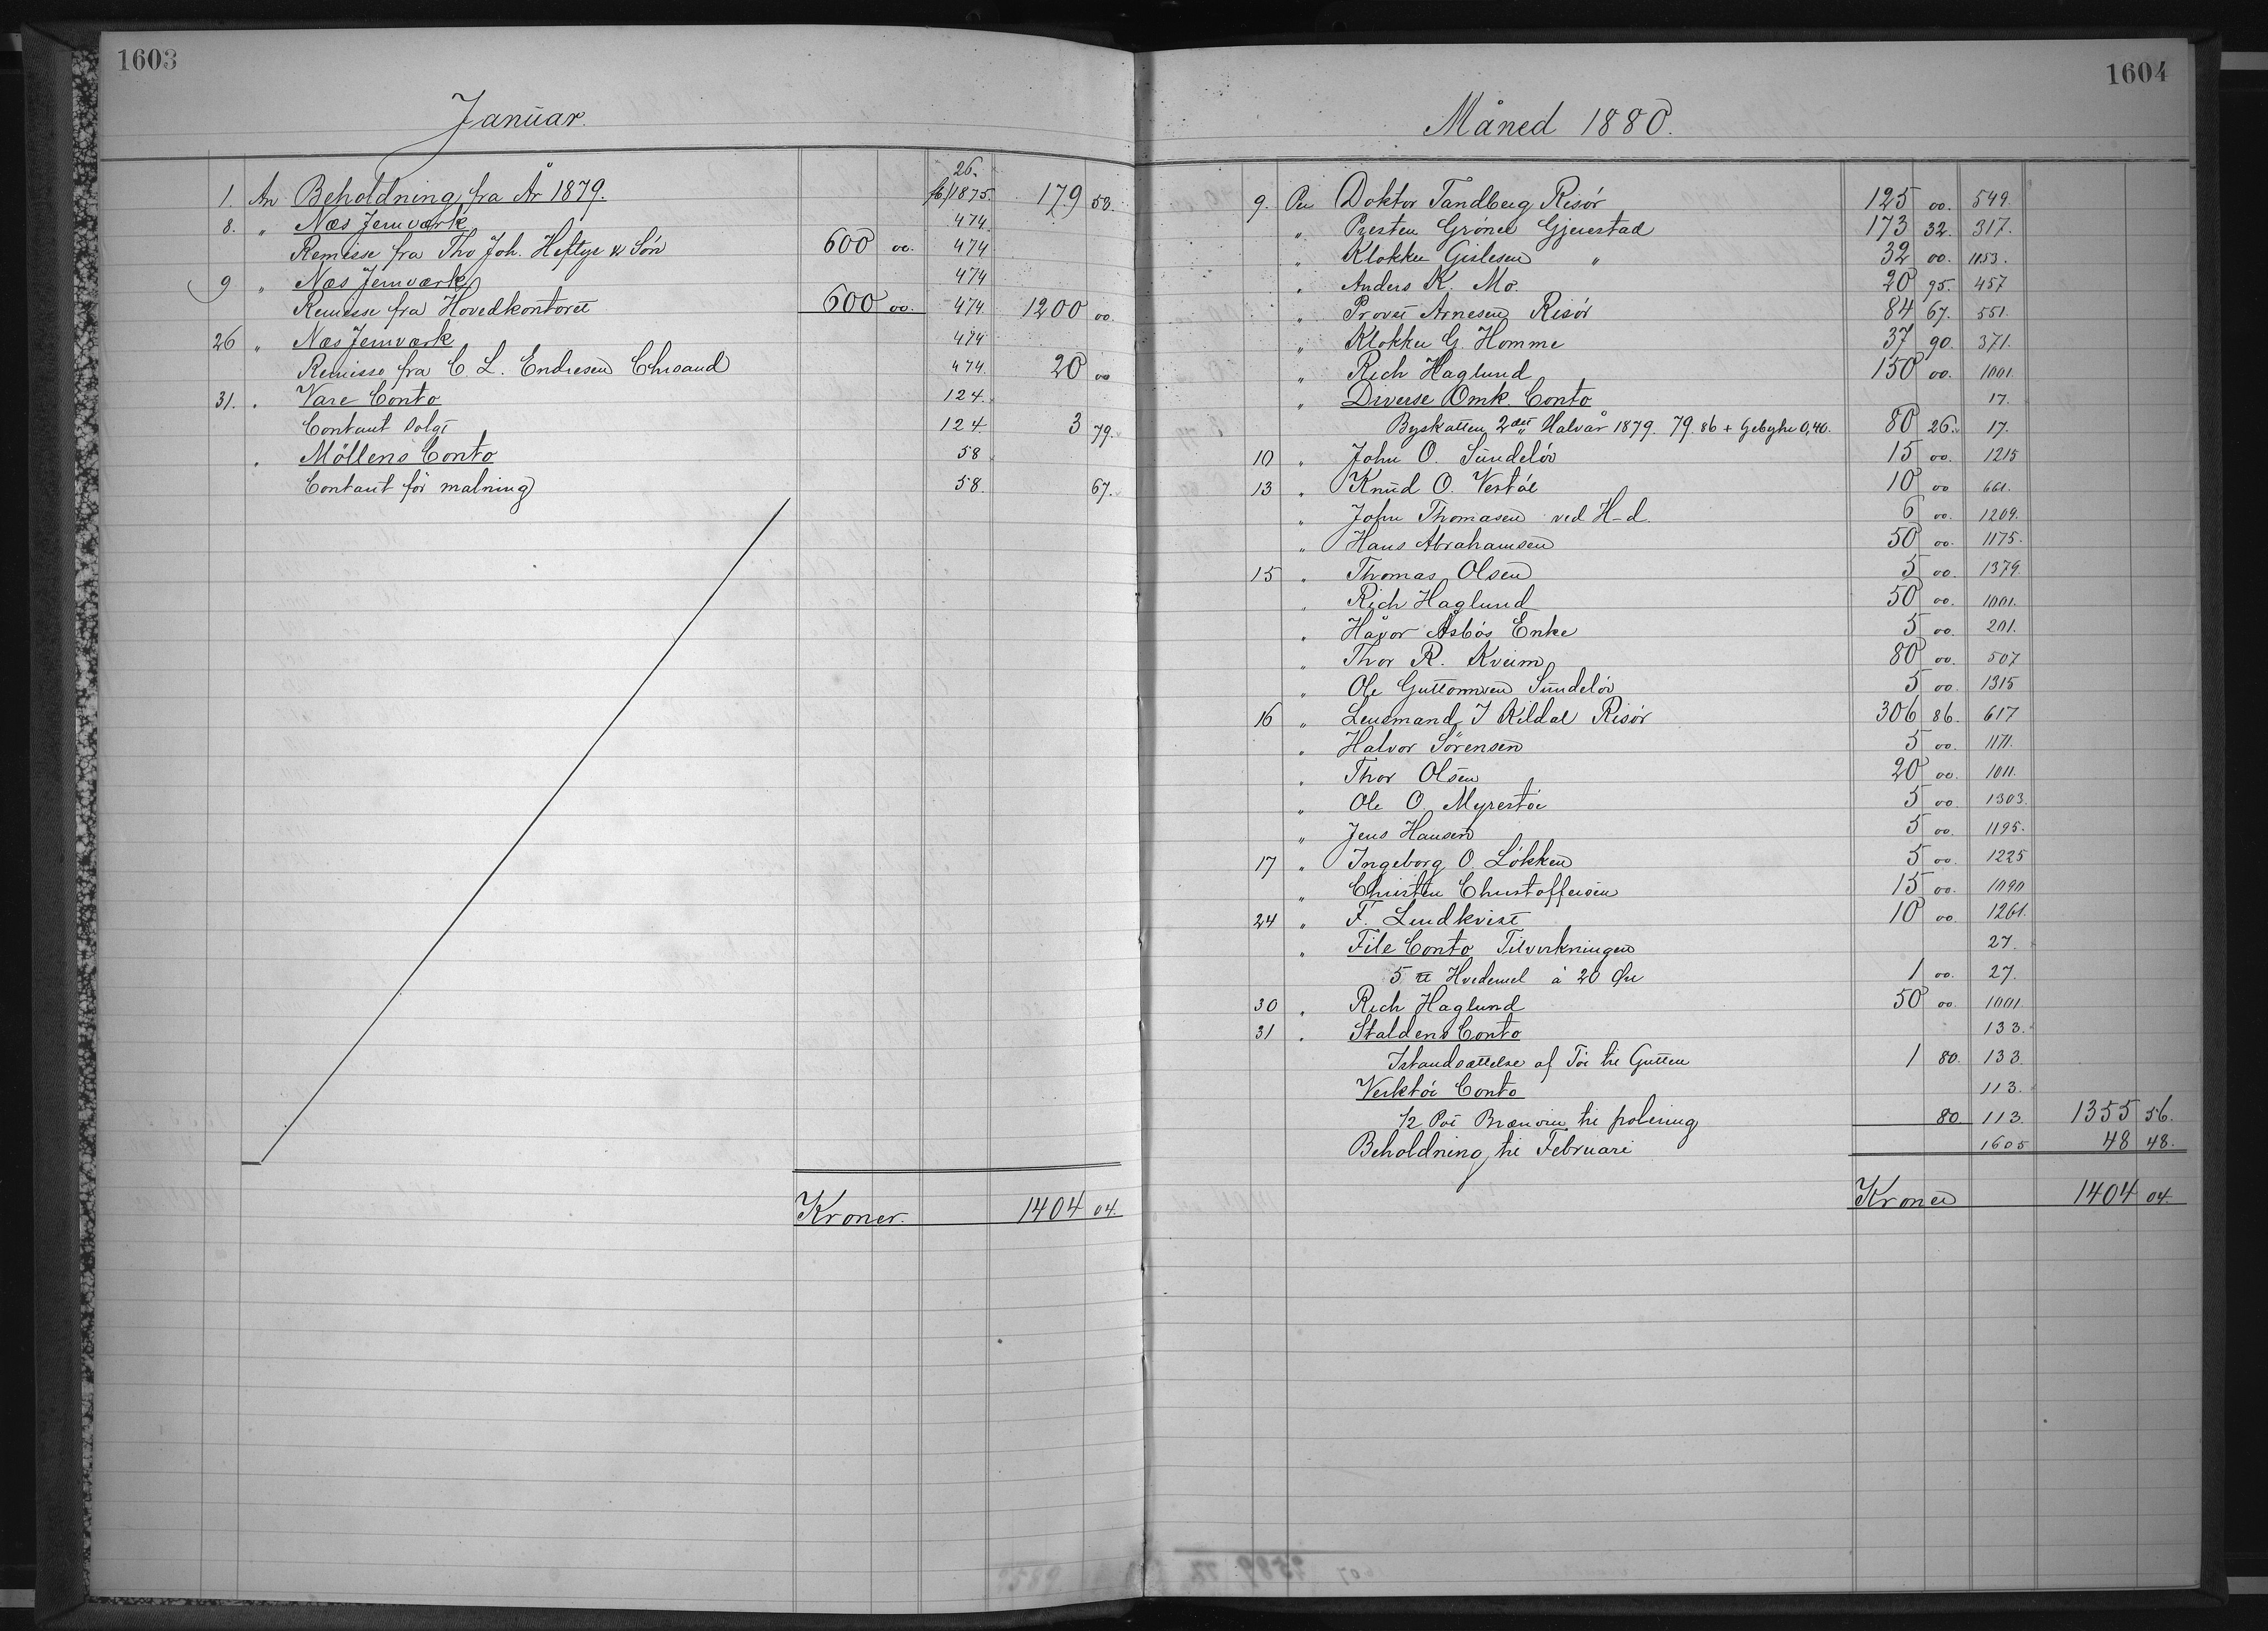 1603
Januar.
26.
1. An Beholdning fra År 1879. fo/1875. 179 53.
8. " Næs Jernværk 474.
Remisse fra Tho Joh. Heftye & Sön 600 00. 474
9 " Næs Jernværk 474
Remisse fra Hovedkontoret 600 00. 474. 1200 00.
26 " Næs Jernværk 474
Remisse fra C. L. Endresen Chrsand 474. 20 00
31. " Vare Conto 124.
Contant Solgt 124. 3 79.
" Möllens Conto 58
Contant för malning 58. 67.
Kroner. 1404 04.
1604
Måned 1880.
9. Per Doktor Tandberg Risör 125 00. 549.
" Presten Gröner Gjerestad 173 32. 317.
" Klokker Gislesen " 32 00. 1153.
" Anders K. Mo. 20 95. 457
" Provst Arnesen Risör 84 67. 551.
" Klokker G. Homme 37 90. 371.
" Rich Haglund 150 00. 1001.
" Diverse Omk. Conto 17.
Byskatten 2det Halvår 1879. 79.86 + Gebyhr 0,40. 80 26. 17.
10 " John O. Sundelöv 15 00. 1215
13 " Knud O. Vestöl 10 00 661.
" John Thomasen ved H-d. 6 00. 1209.
" Hans Abrahamsen 50 00. 1175.
15 " Thomas Olsen 5 00. 1379.
" Rich Haglund 50 00. 1001.
" Håvor Åsbös Enke 5 00. 201.
" Thor R. Kveim 80 00. 507
" Ole Guttormsen Sundelöv 5 00. 1315
16 " Lensmand J Kildal Risör 306 86. 617
" Halvor Sörensen 5 00. 1171.
" Thor Olsen 20 00. 1011.
" Ole O. Myrestöe 5 00. 1303.
" Jens Hansen 5 00. 1195.
17 " Ingeborg O. Lökken 5 00. 1225
" Christen Christoffersen 15 00. 1090
24 " F. Lindkvist 10 00 1261.
" File Conto Tilvirkningen 27.
5 ℔ Hvedemel à 20 Øre 1 00. 27.
30 " Rich Haglund 50 00. 1001
31 " Staldens Conto 133.
Istandsættelse af Töi til Gutten 1 80. 133
Verktöi Conto 113.
1/2 Pot Brænvin til polering 80 113. 1355 56.
Beholdning til Februari 1605 48 48.
Kroner 1404 04.